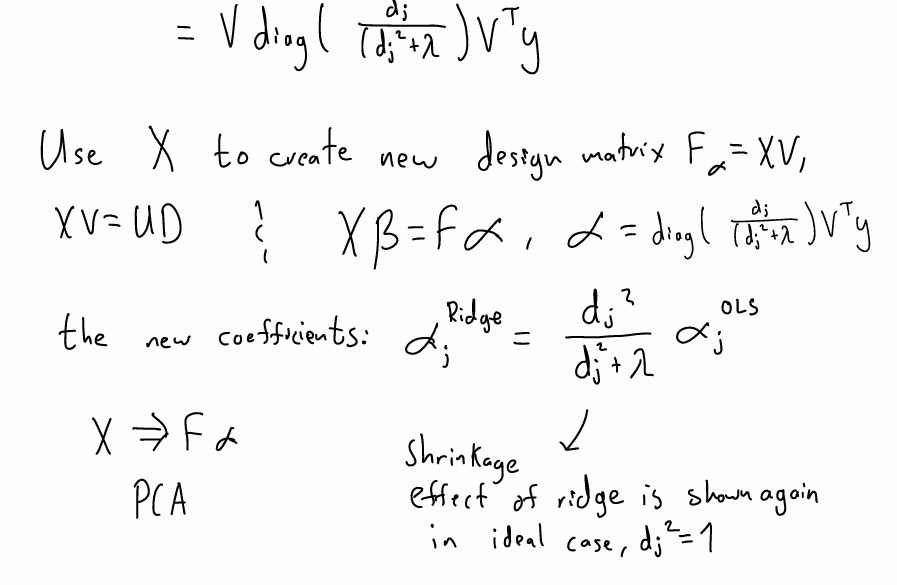 = V diag( dj / (dj²+λ) ) Vᵀy
Use X to create new design matrix F_α = XV,
XV = UD & Xβ = Fα, α = diag( dj / (dj²+λ) ) Vᵀy
the new coefficients: αj^Ridge = dj² / (dj²+λ) αj^OLS
X ⇒ Fα
PCA
Shrinkage
effect of ridge is shown again
in ideal case, dj² = 1